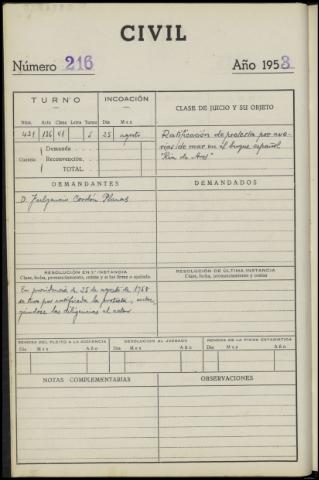 CIVIL
Número 216 Año 1953
TURNO INCOACIÓN CLASE DE JUICIO Y SU OBJETO
Núm. Acta Clase Letra Turno Día Mes
431 136 41 5 25 agosto Ratificación de protesta por
de mar en el buque español
Cuantía Demanda "Ría de Ares"
Reconvención
TOTAL
DEMANDANTES DEMANDADOS
D. Fulgencio Cordón Planas
RESOLUCIÓN EN 1.ª INSTANCIA RESOLUCIÓN DE ÚLTIMA INSTANCIA
Clase, fecha, pronunciamiento, costas y si fué firme o apelada. Clase, fecha, pronunciamiento y costas
En providencia de 25 de agosto de
se tuvo por ratificada la protesta,
las diligencias al actor
REMESA DEL PLEITO A LA AUDIENCIA DEVOLUCION AL JUZGADO REMESA DE LA FICHA ESTADISTICA
Día Mes Año Día Mes Año Día Mes Año
NOTAS COMPLEMENTARIAS OBSERVACIONES